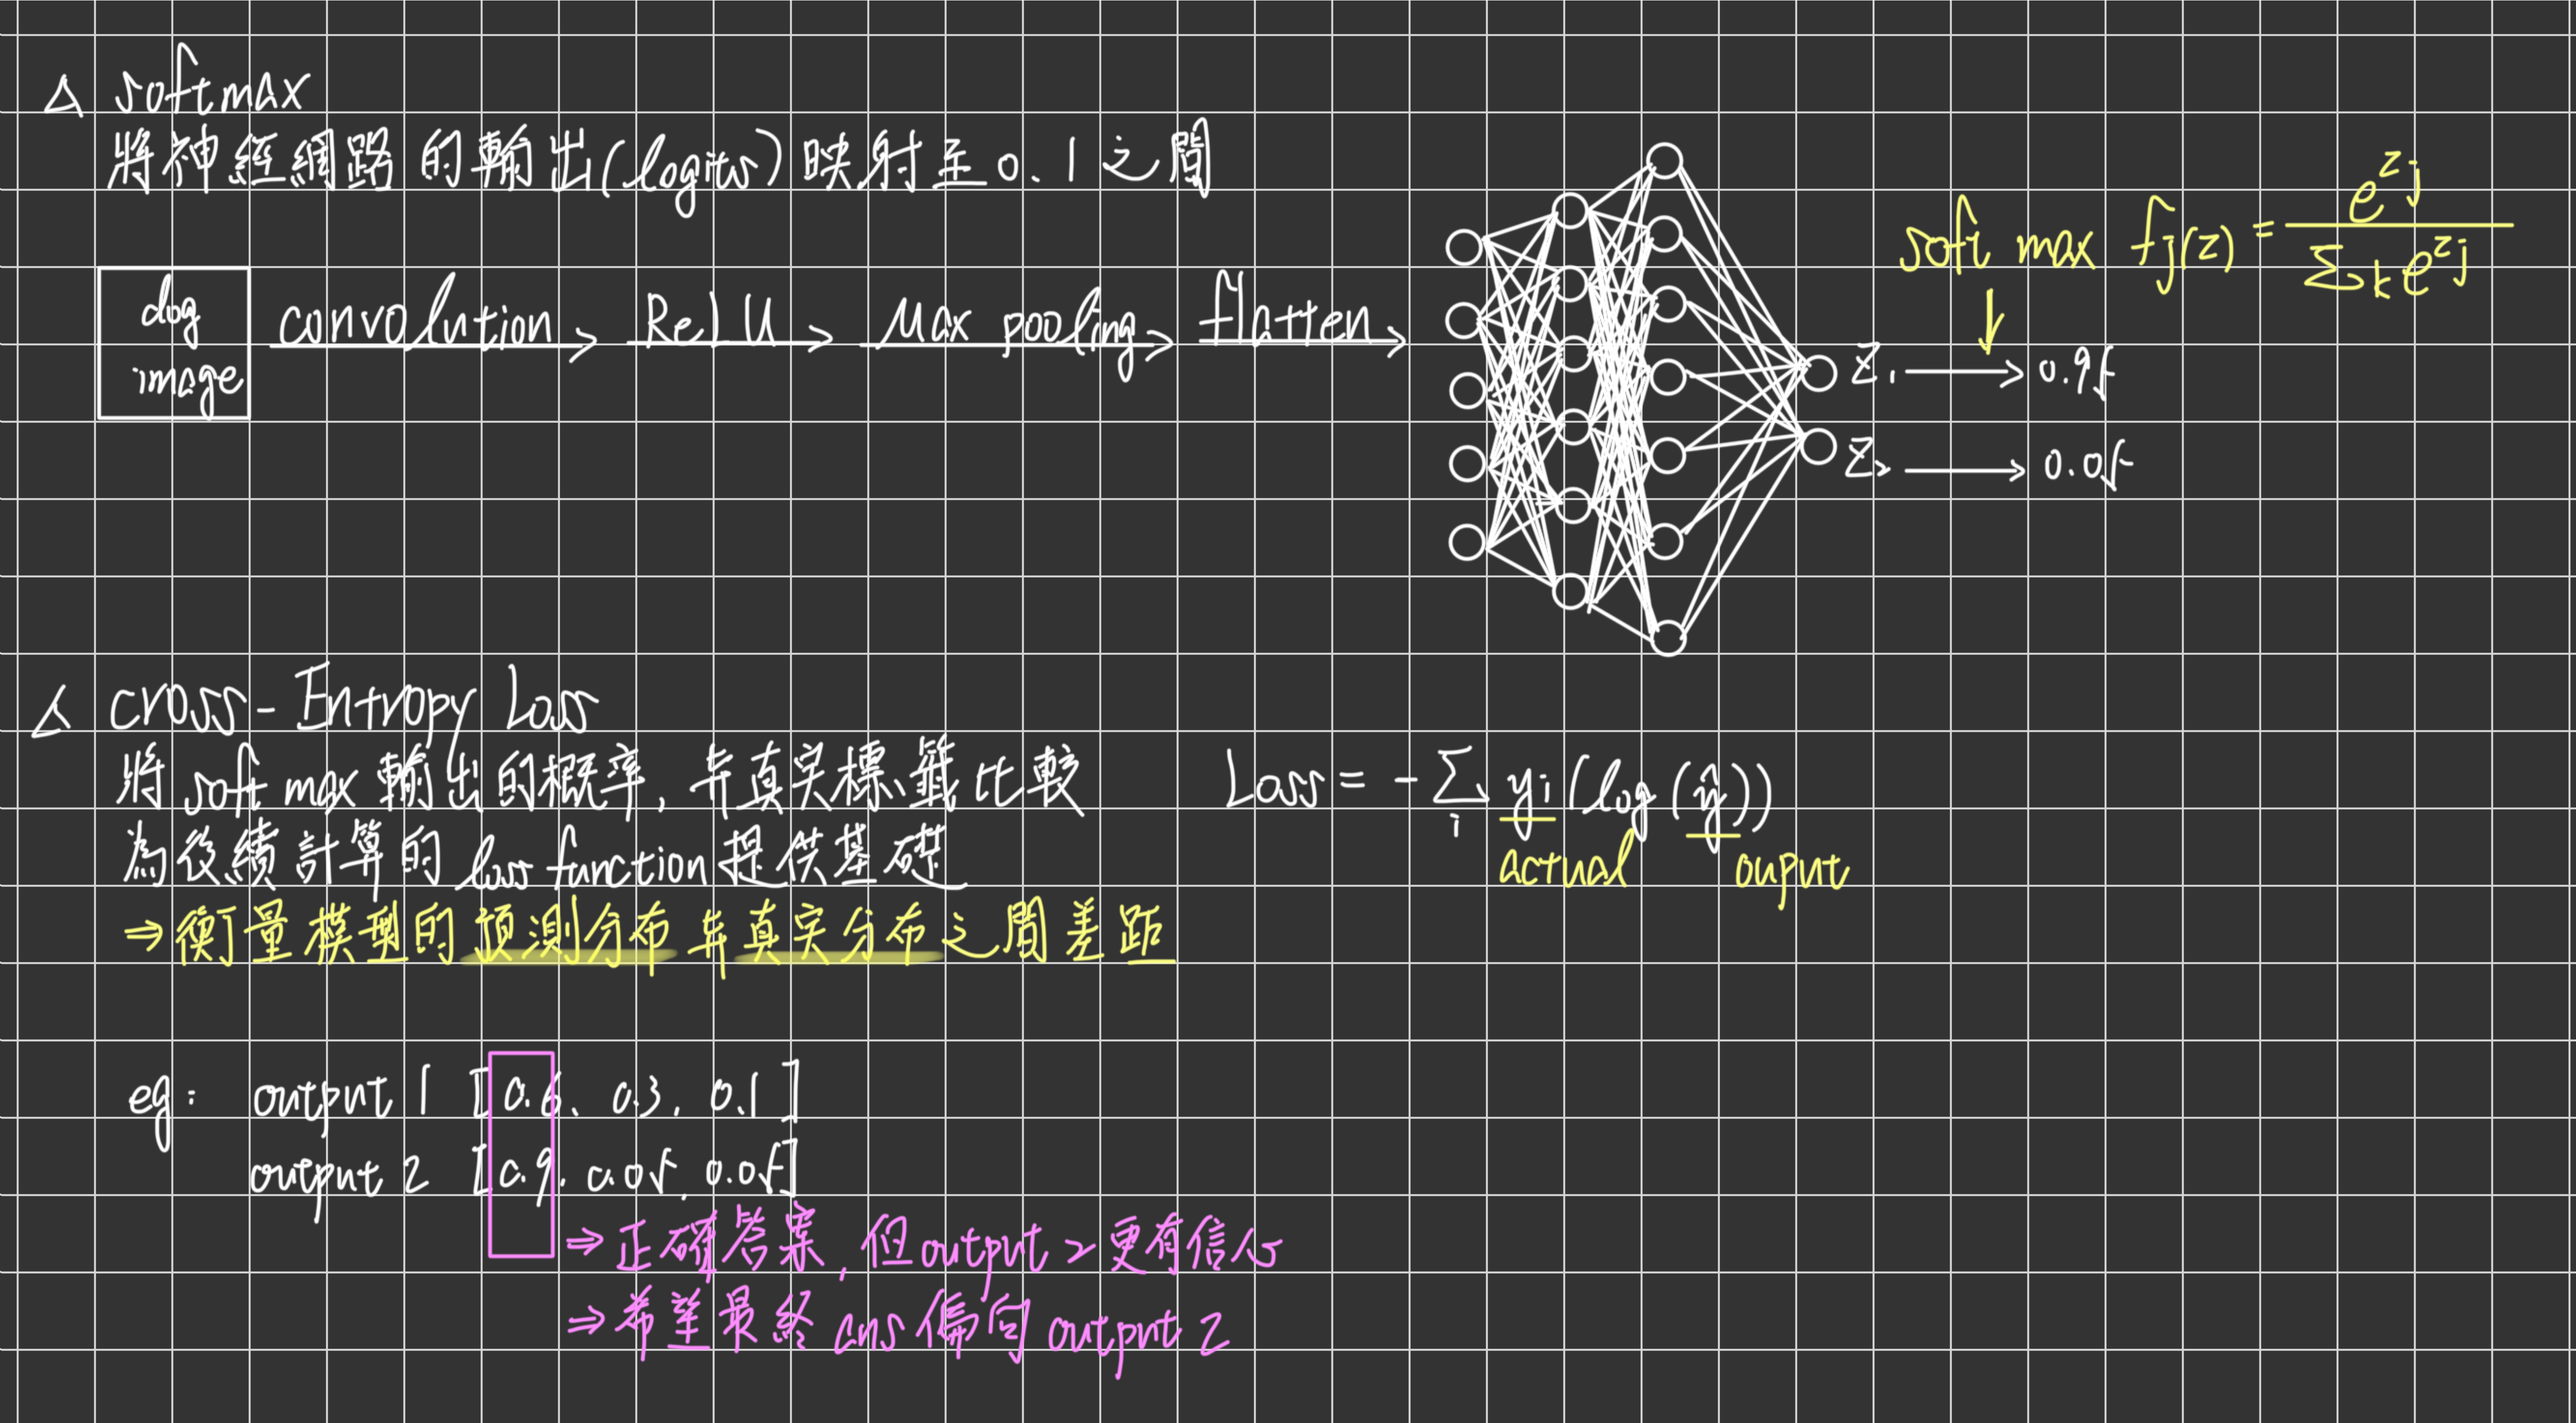 △ softmax
將神經網路的輸出(logits)映射至0.1之間
dog
image
convolution
ReLU
Max pooling
flatten
soft max fj(z) = e^zj / Σk e^zj
Z₁ → 0.95
Z₂ → 0.05
△ cross-Entropy Loss
將 soft max 輸出的概率,与真实標籤比較
為後續計算的 loss function 提供基礎
⇒ 衡量模型的預測分布与真实分布之間差距
Loss = -Σi yi(log(ŷ))
actual
ouput
eg: output 1 [0.6, 0.3, 0.1]
output 2 [0.9, 0.05, 0.05]
⇒ 正確答案,但output 2更有信心
⇒ 希望最終 ans 偏向 output 2